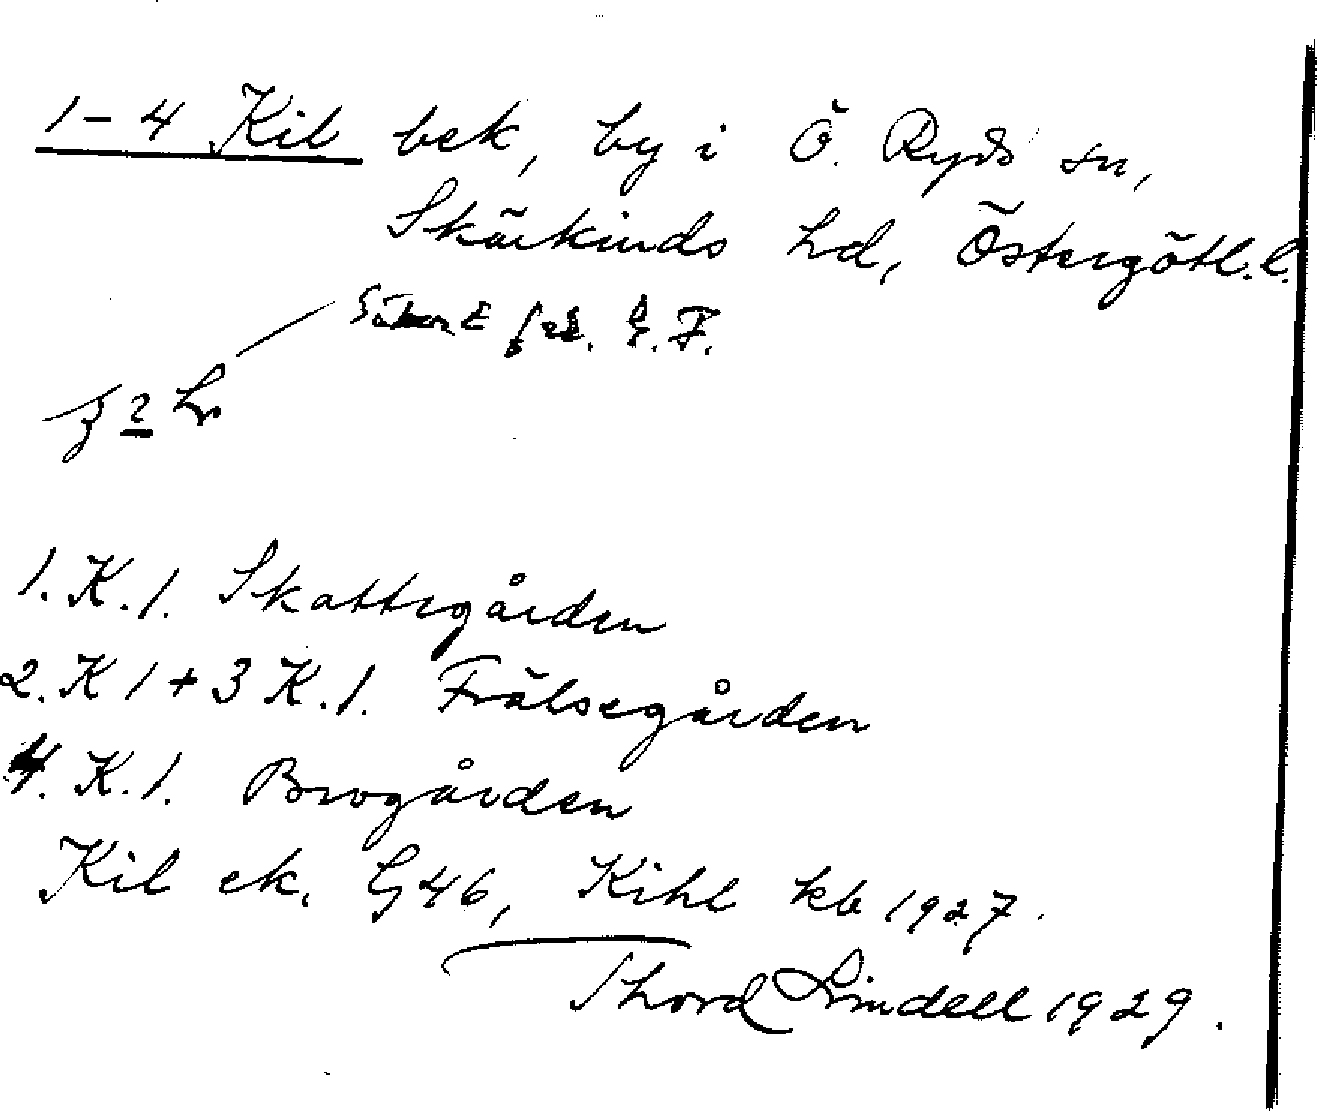 1-4 Kil bek, by i Ö. Ryds sn,
Skärkinds hd, Östergötl. l.
E. F.
1. K. 1. Skattegården
2. K 1 + 3 K. 1. Frälsegården
4. K. 1. Brogården
Kil ek. G 46, Kihl kb 1927.
Thord Lindell 1929.